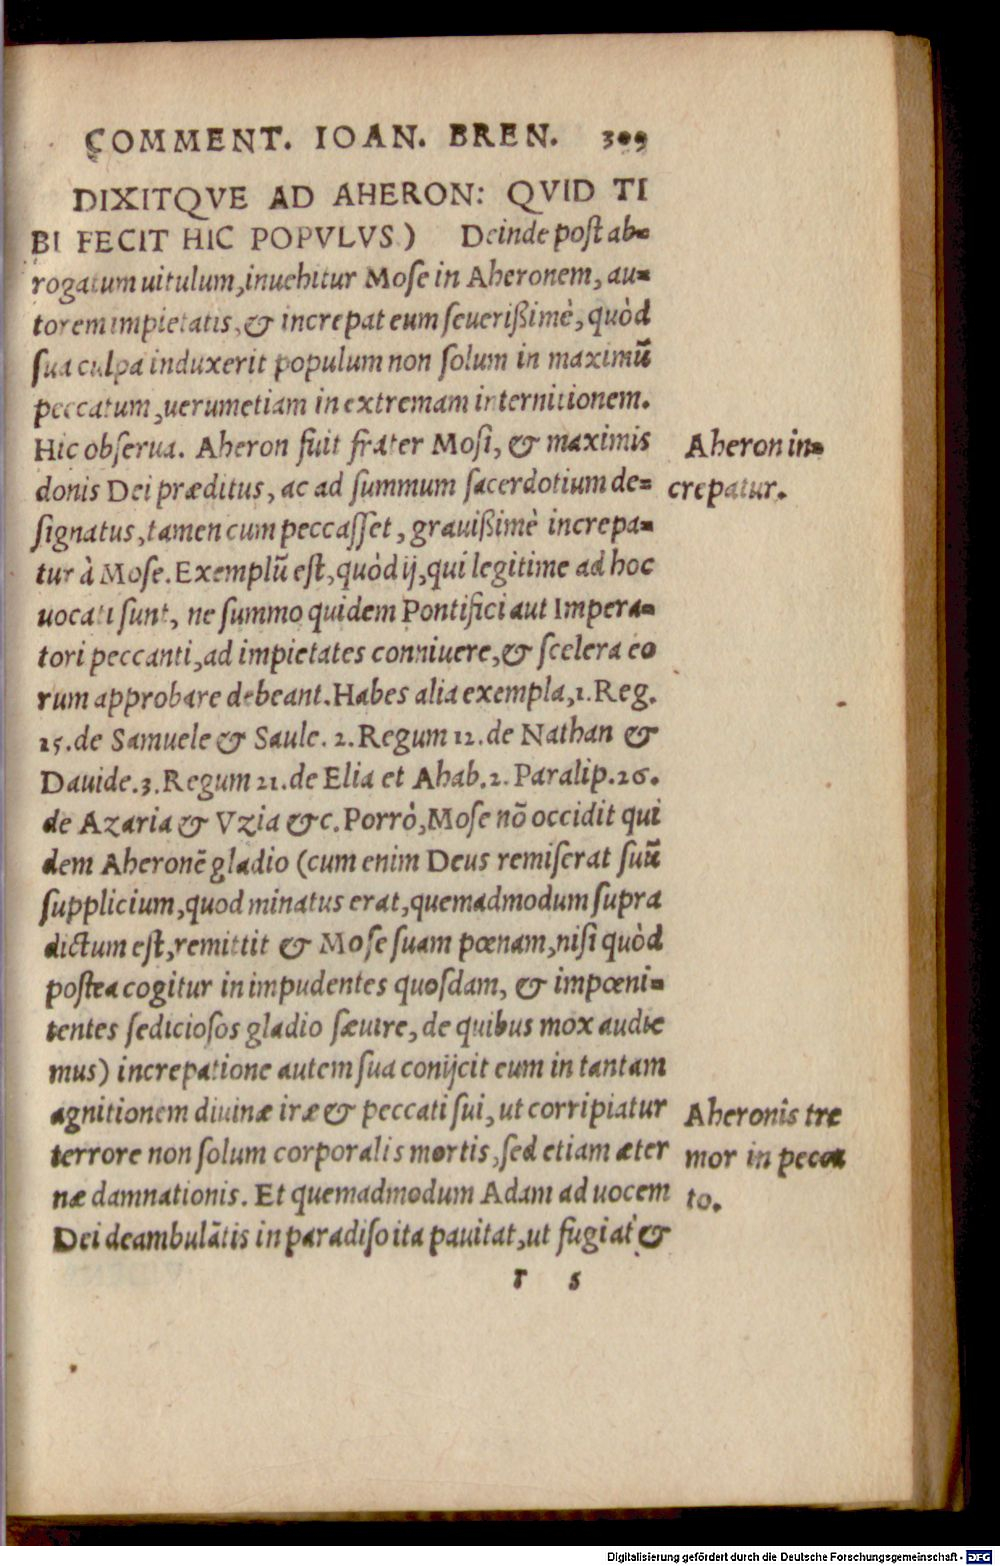 COMMENT. IOAN. BREN. 309
DIXITQVE AD AHERON: QVID TI
BI FECIT HIC POPVLVS) Deinde poſt ab=
rogatum uitulum, inuehitur Moſe in Aheronem, au=
torem impietatis, & increpat eum ſeuerißimè, quòd
ſua culpa induxerit populum non ſolum in maximũ
peccatum, uerumetiam in extremam internitionem.
Hic obſerua. Aheron fuit frater Moſi, & maximis
donis Dei præditus, ac ad ſummum ſacerdotium de=
ſignatus, tamen cum peccaſſet, grauißimè increpa=
tur à Moſe. Exemplũ eſt, quòd ij, qui legitime ad hoc
uocati ſunt, ne ſummo quidem Pontifici aut Impera=
tori peccanti, ad impietates conniuere, & ſcelera eo
rum approbare debeant. Habes alia exempla, 1. Reg.
15. de Samuele & Saule. 2. Regum 12. de Nathan &
Dauide. 3. Regum 21. de Elia et Ahab. 2. Paralip. 26.
de Azaria & Vzia &c. Porrò, Moſe nõ occidit qui
dem Aheronẽ gladio (cum enim Deus remiſerat ſuũ
ſupplicium, quod minatus erat, quemadmodum ſupra
dictum eſt, remittit & Moſe ſuam pœnam, niſi quòd
poſtea cogitur in impudentes quoſdam, & impœni=
tentes ſedicioſos gladio ſæuire, de quibus mox audie
mus) increpatione autem ſua conijcit eum in tantam
agnitionem diuinæ iræ & peccati ſui, ut corripiatur
terrore non ſolum corporalis mortis, ſed etiam æter
næ damnationis. Et quemadmodum Adam ad uocem
Dei deambulãtis in paradiſo ita pauitat, ut fugiat &
r 5
Aheron in=
crepatur.
Aheronis tre
mor in pecca
to.
Digitalisierung gefördert durch die Deutsche Forschungsgemeinschaft - DFG